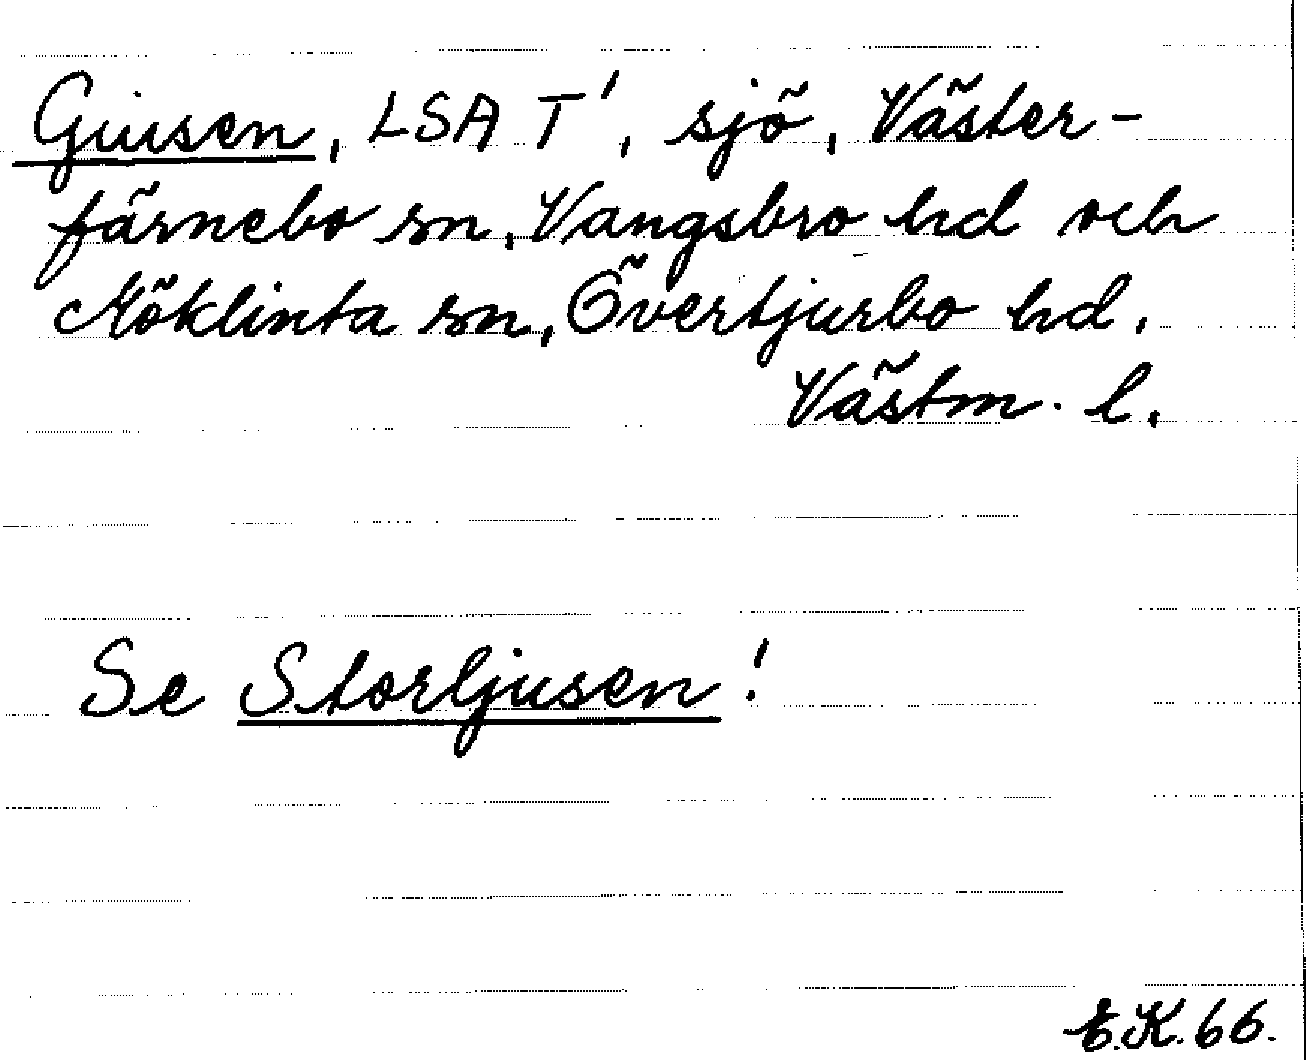 Giusen, LSA T', sjö, Väster-
färnebo sn, Vangsbro hd och
Möklinta sn, Övertjurbo hd,
Västm. l.
Se Storljusen!
E.K.66.